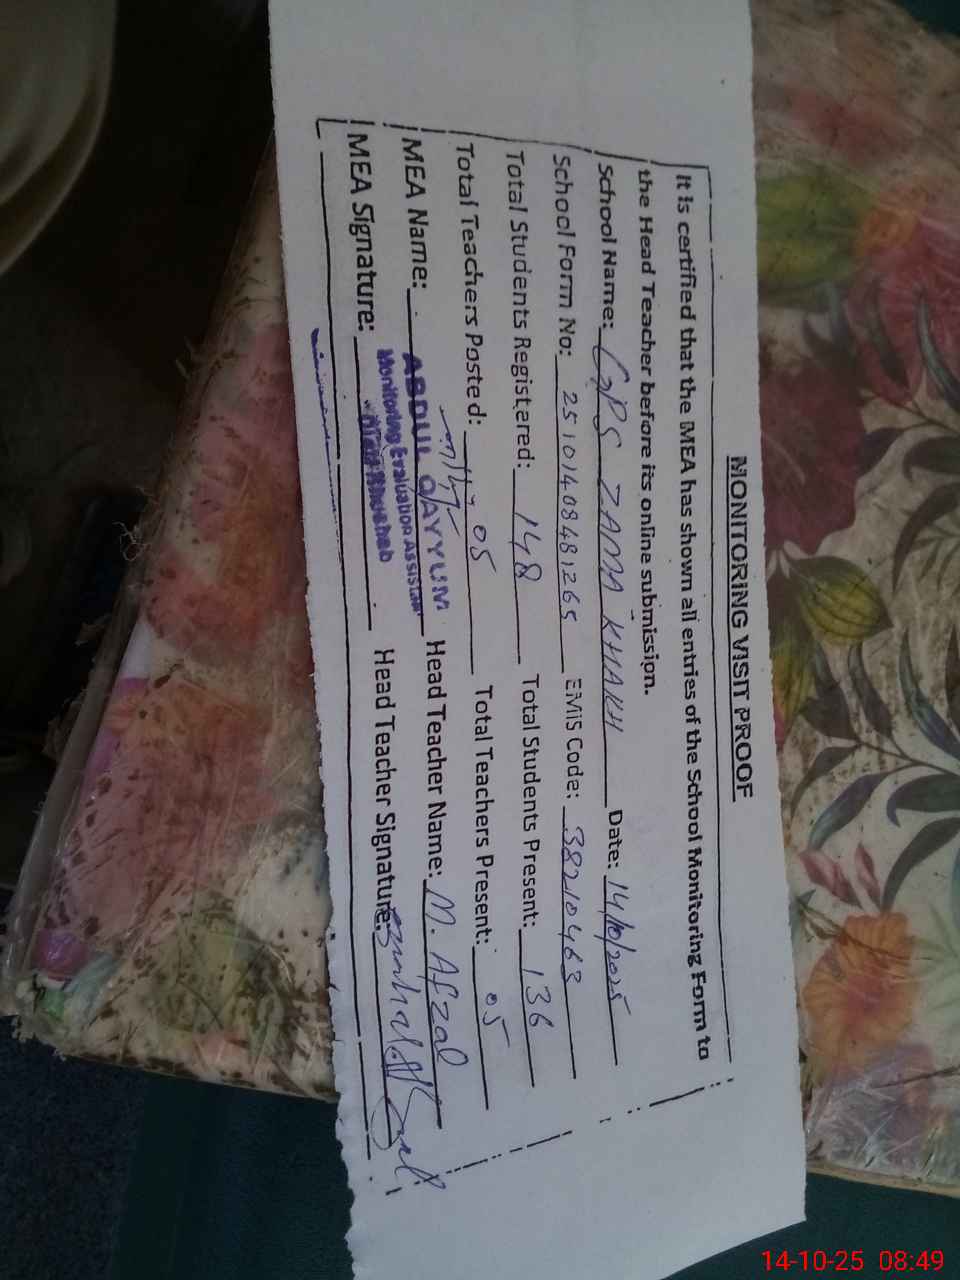 MONITORING VISIT PROOF
It is certified that the MEA has shown all entries of the School Monitoring Form to
the Head Teacher before its online submission.
School Name: GPS ZAMA KHAKH Date: 14/10/2025
School Form No: 25101408481265 EMIS Code: 38210463
Total Students Registered: 148 Total Students Present: 136
Total Teachers Posted: 05 Total Teachers Present: 05
MEA Name: ABDUL QAYYUM Head Teacher Name: M. Afzal
Monitoring Evaluation Assistant
MEA Signature: Head Teacher Signature:
14-10-25 08:49